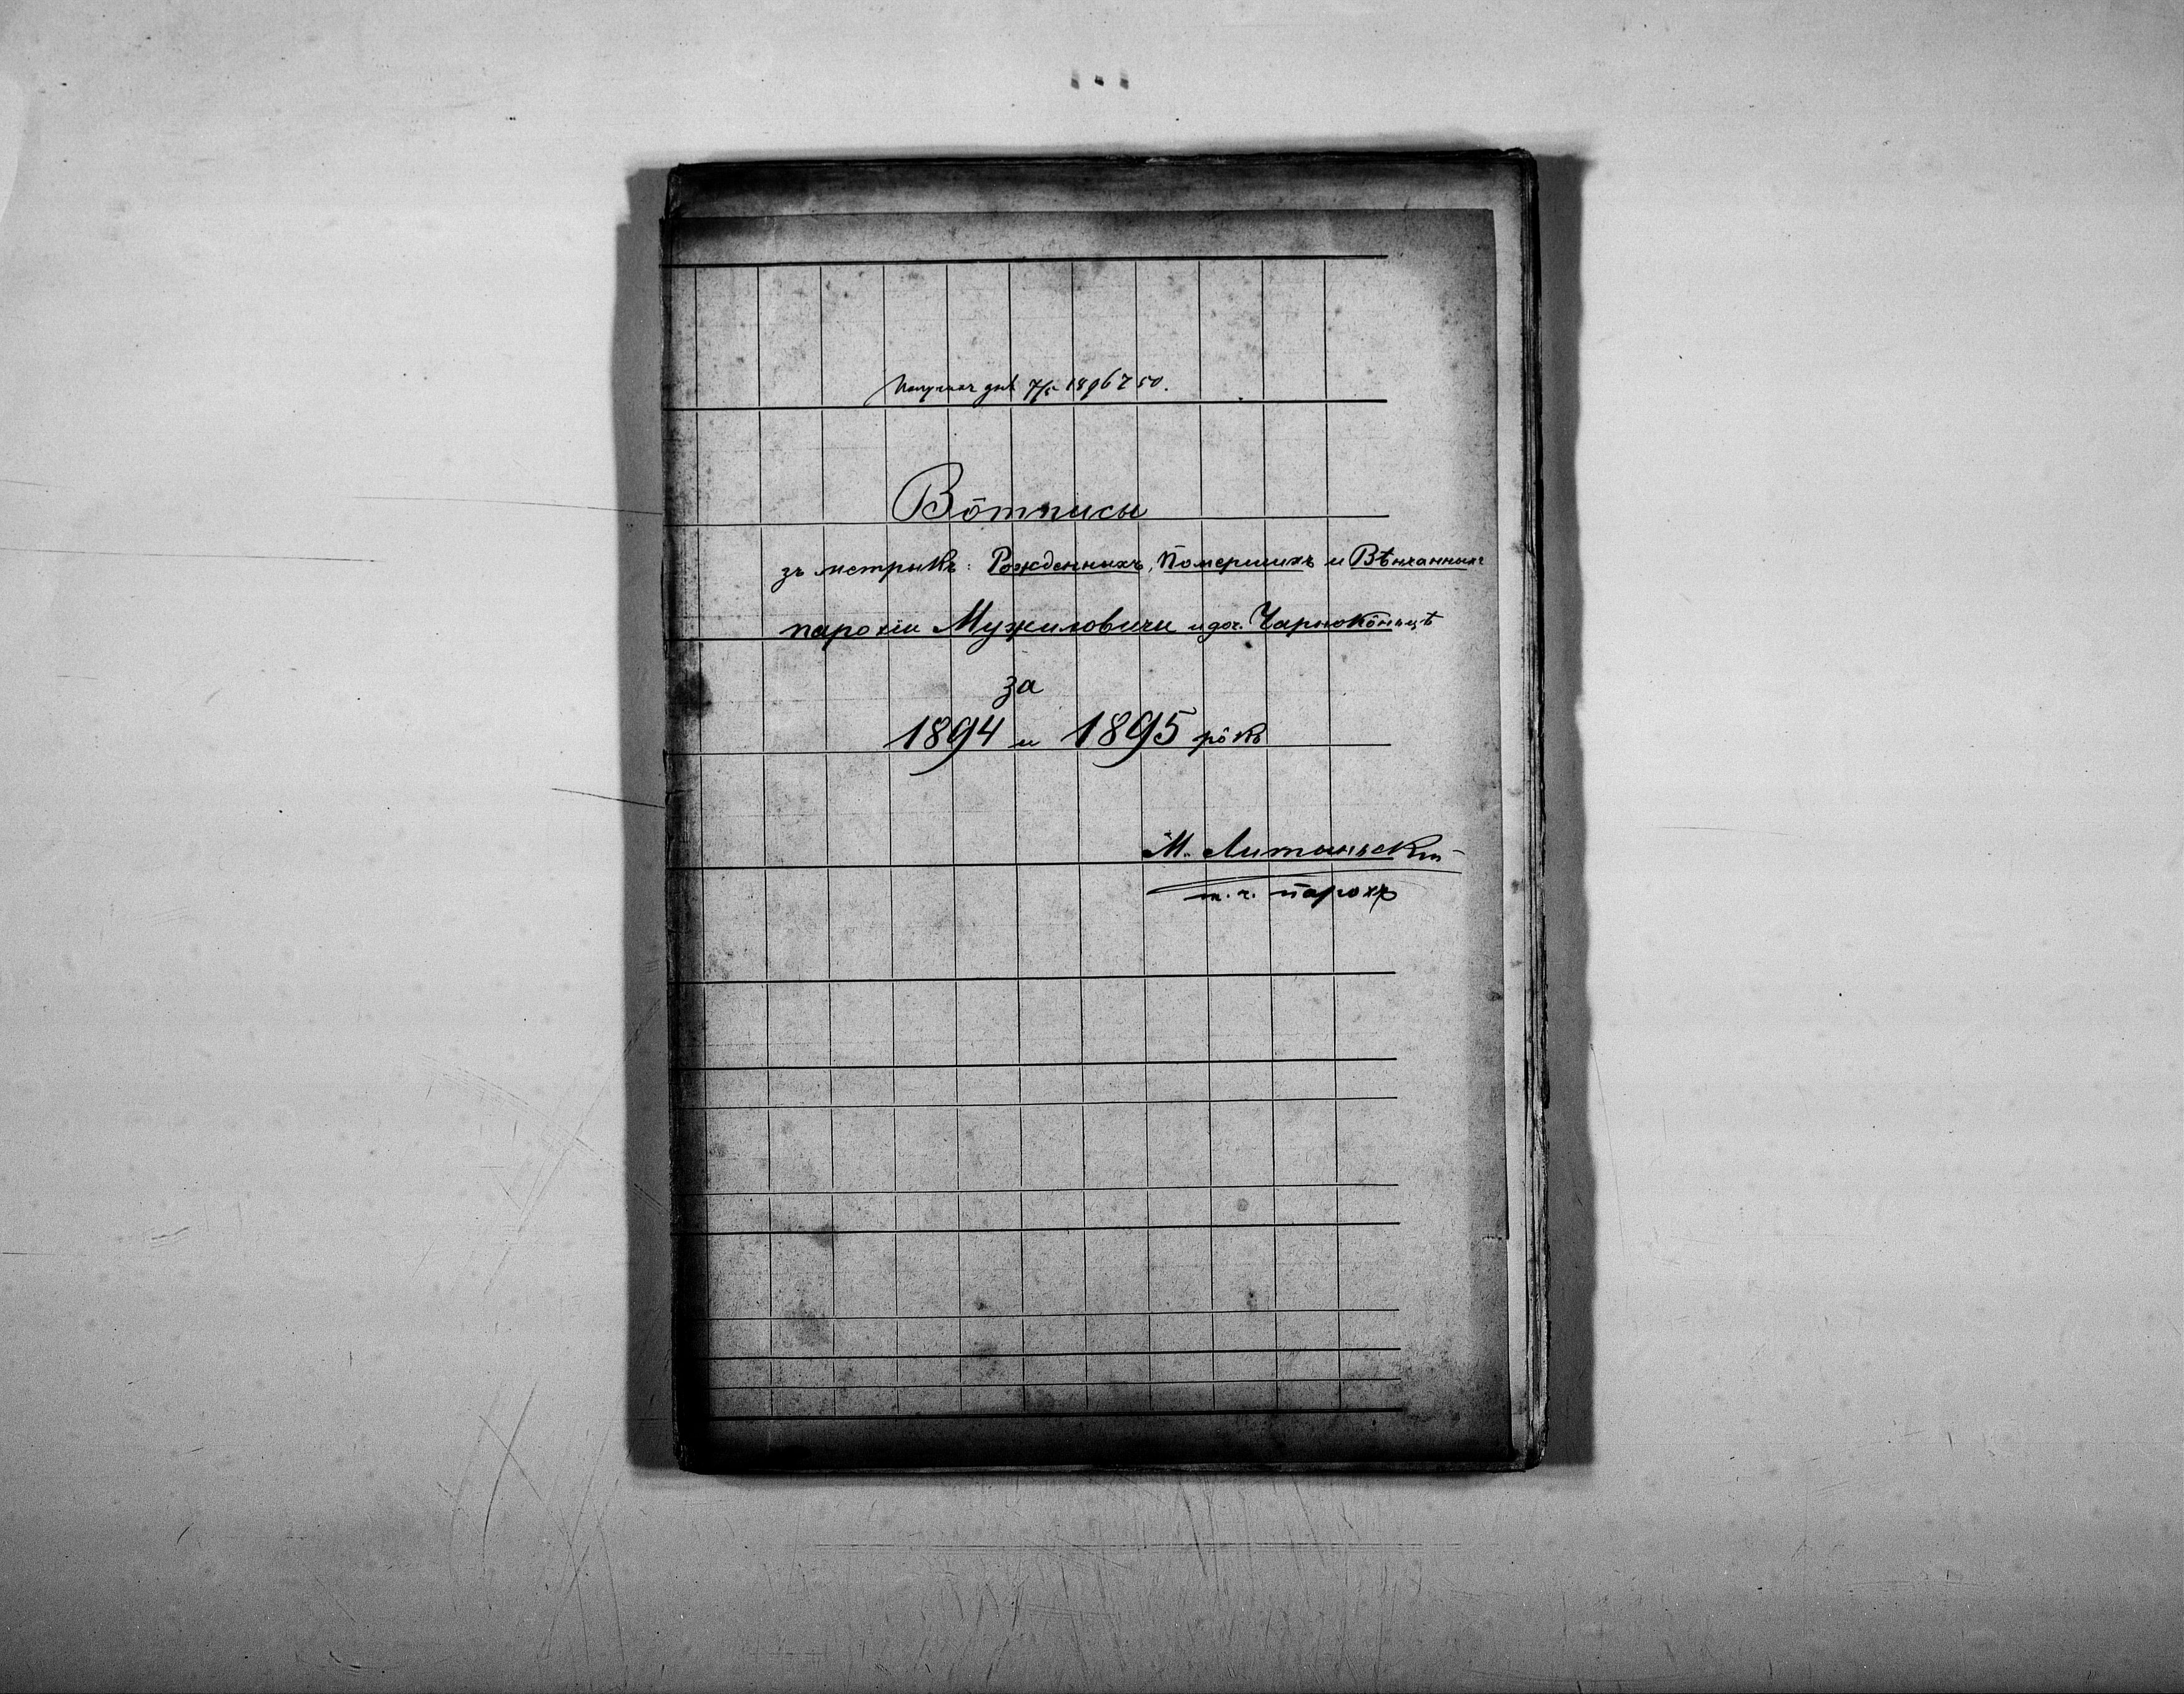 дня 7/5 1896
Вôтписы
зъ метрикъ: Рожденныхъ, Помершихъ и Вѣнчанныхъ
парохіи Мужиловичи и доч. Чарнокôньцѣ
за
1894 и 1895 рôкъ
М. Литыньскій
парохъ